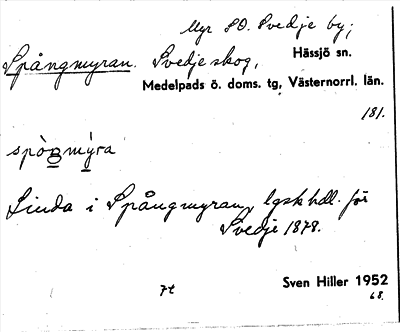 Myr SO. Svedje by;
Spångmyran. Svedje skog, Hässjö sn.
Medelpads ö. doms. tg, Västernorrl. län.
181.
spòŋmỳra
Linda i Spångmyran, lgsk hdl. för
Svedje 1878.
7t
Sven Hiller 1952
68.